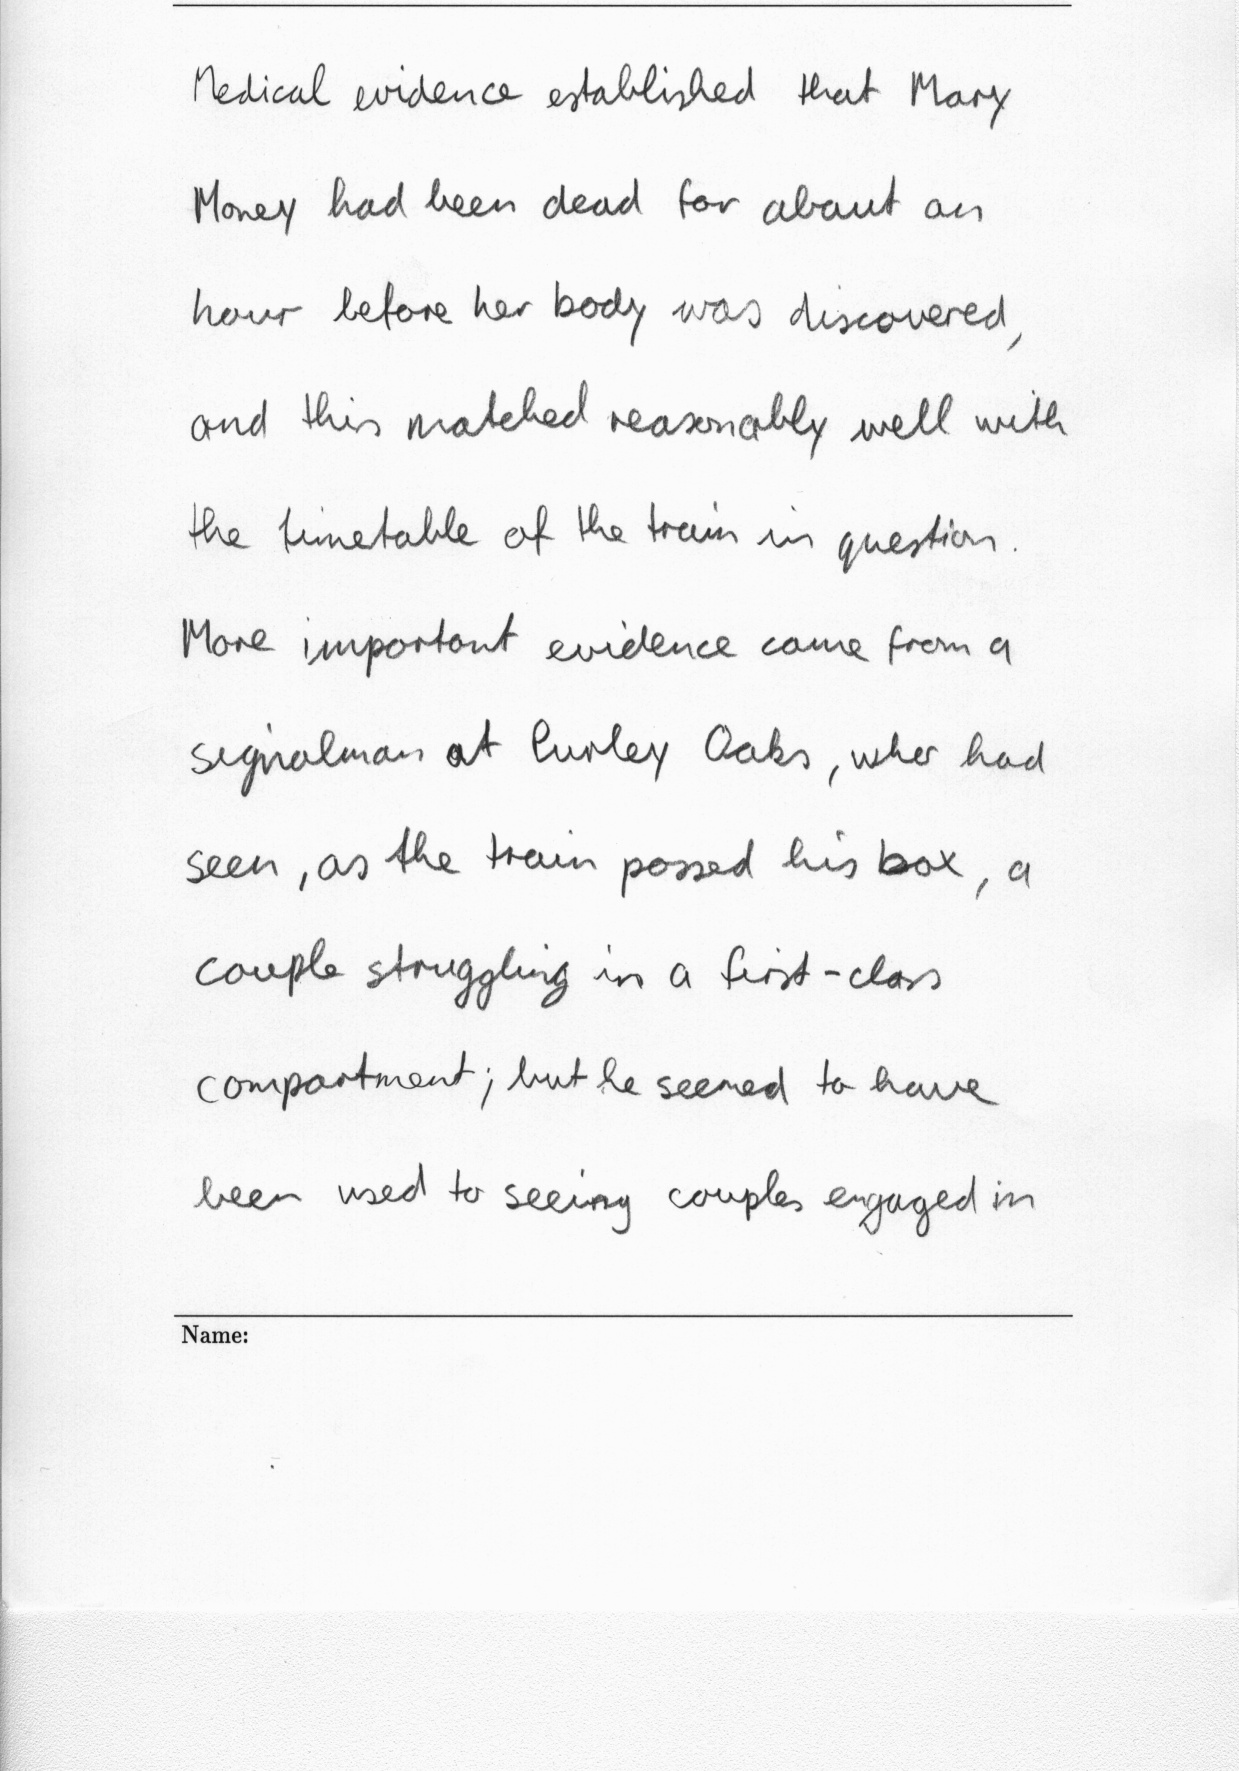 Medical evidence established that Mary
Money had been dead for about an
hour before her body was discovered,
and this matched reasonably well with
the timetable of the train in question.
More important evidence came from a
signalman at Purley Oaks, who had
seen, as the train passed his box, a
couple struggling in a first-class
compartment; but he seemed to have
been used to seeing couples engaged in
Name: